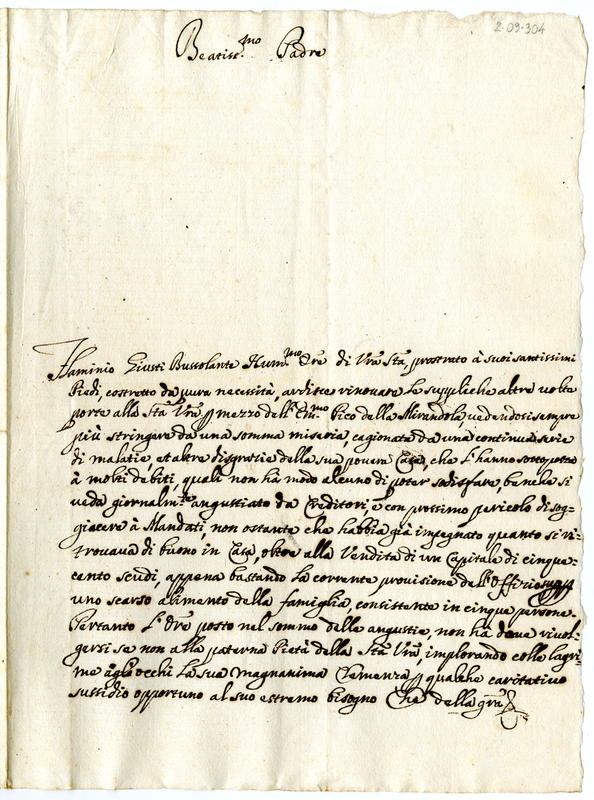 2-09-304
Beatiss.mo Padre
Flaminio Giusti Bussolante Hum.mo Ore di Vra Stà, prostrato à suoi santissimi
Piedi, costretto da pura necessità, ardisce rinovare le suppliche altre volte
porte alla Stà Vra p mezzo dell' Em.mo Pico della Mirandola, vedendosi sempre
più stringere da una somma miseria, cagionata da una continua serie
di malatie, et altre disgratie della sua povera Casa, che l'hanno sottoposta
à molti debiti, quali non hà modo alcuno di poter sodisfare, benche si
veda giornalm.te angustiato da Creditori, e con prossimo pericolo di sog=
giacere à Mandati, non ostante che habbia già impegnato quanto si ri=
trovava di buono in Casa, oltre alla Vendita di un Capitale di cinque=
cento scudi, appena bastando la corrente provisione dell' Offitio
uno scarso alimento della famiglia, consistente in cinque persone.
Pertanto l'Ore posto nel sommo delle angustie, non hà dove rivol=
gersi se non alla paterna Pietà della Stà Vra, implorando colle lagri=
me agl'occhi la sua magnanima Clemenza p qualche caritativo
sussidio opportuno al suo estremo bisogno Che della gra